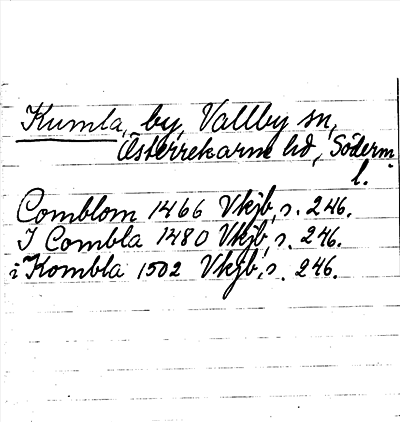 Kumla, by, Vallby sn,
Österrekarne hd, Söderm.
l.
Comblom 1466 Vkjb, s. 246.
I Combla 1480 Vkjb, s. 246.
i Kombla 1502 Vkjb, s. 246.